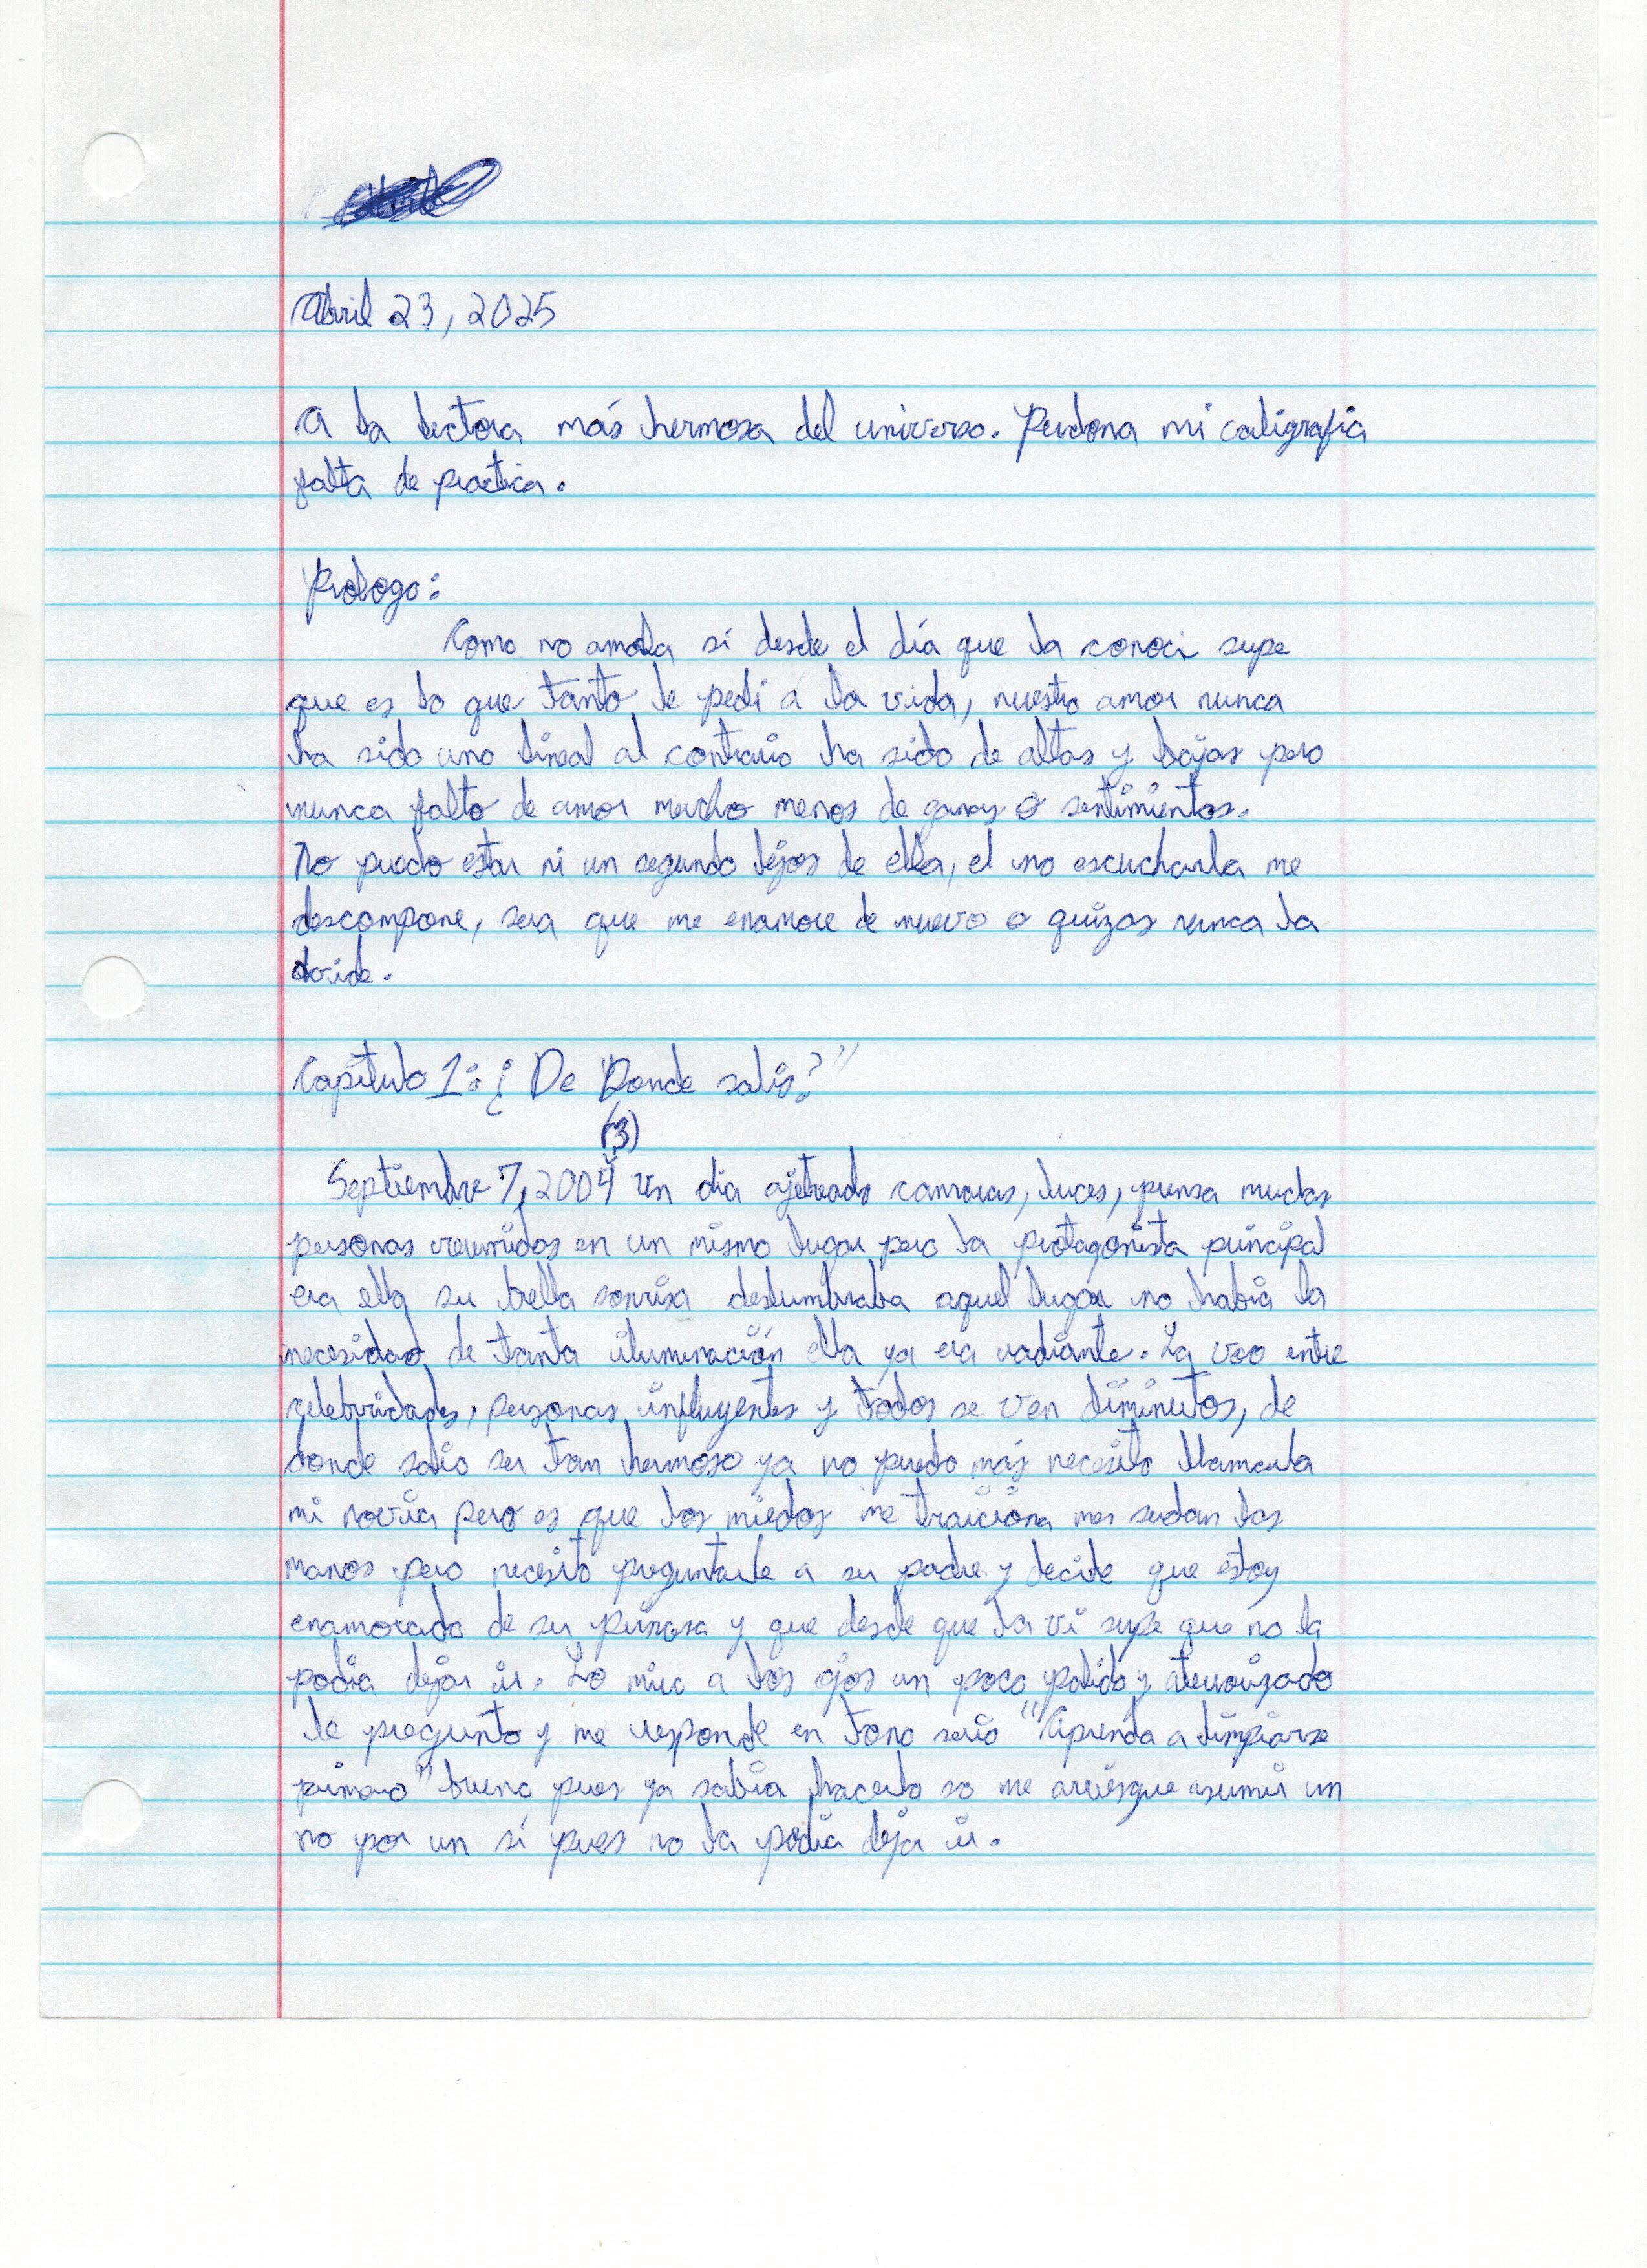 Abril 23, 2025
A la lectora más hermosa del universo. Perdona mi caligrafia
falta de practica.
Prologo:
Como no amarla si desde el día que la conoci supe
que es lo que tanto le pedi a la vida, nuestro amor nunca
ha sido uno lineal al contrario ha sido de altas y bajas pero
nunca falto de amor mucho menos de ganas o sentimientos.
No puedo estar ni un segundo lejos de ella, el no escucharla me
descompone, sera que me enamore de nuevo o quizas nunca la
olvide.
Capítulo 1: ¿De Donde salio?"
(3)
Septiembre 7, 2004 Un dia ajetreado camaras, luces, prensa muchas
personas reunidos en un mismo lugar pero la protagonista principal
era ella su bella sonrisa deslumbraba aquel lugar no habia la
necesidad de tanta iluminación ella ya era radiante. La veo entre
celebridades, personas influyentes y todos se ven diminutos, de
donde salio ser tan hermoso ya no puedo más necesito llamarla
mi novia pero es que los miedos me traiciona mes sudan las
manos pero necesito preguntarle a su padre y decirle que estoy
enamorado de su princesa y que desde que la vi supe que no la
podia dejar ir. Lo miro a los ojos un poco palido y aterrorizado
le pregunto y me responde en tono serio "Aprenda a limpiarse
primero" bueno pues ya sabia hacerlo so me arriesgue asumir un
no por un si pues no la podia deja ir.